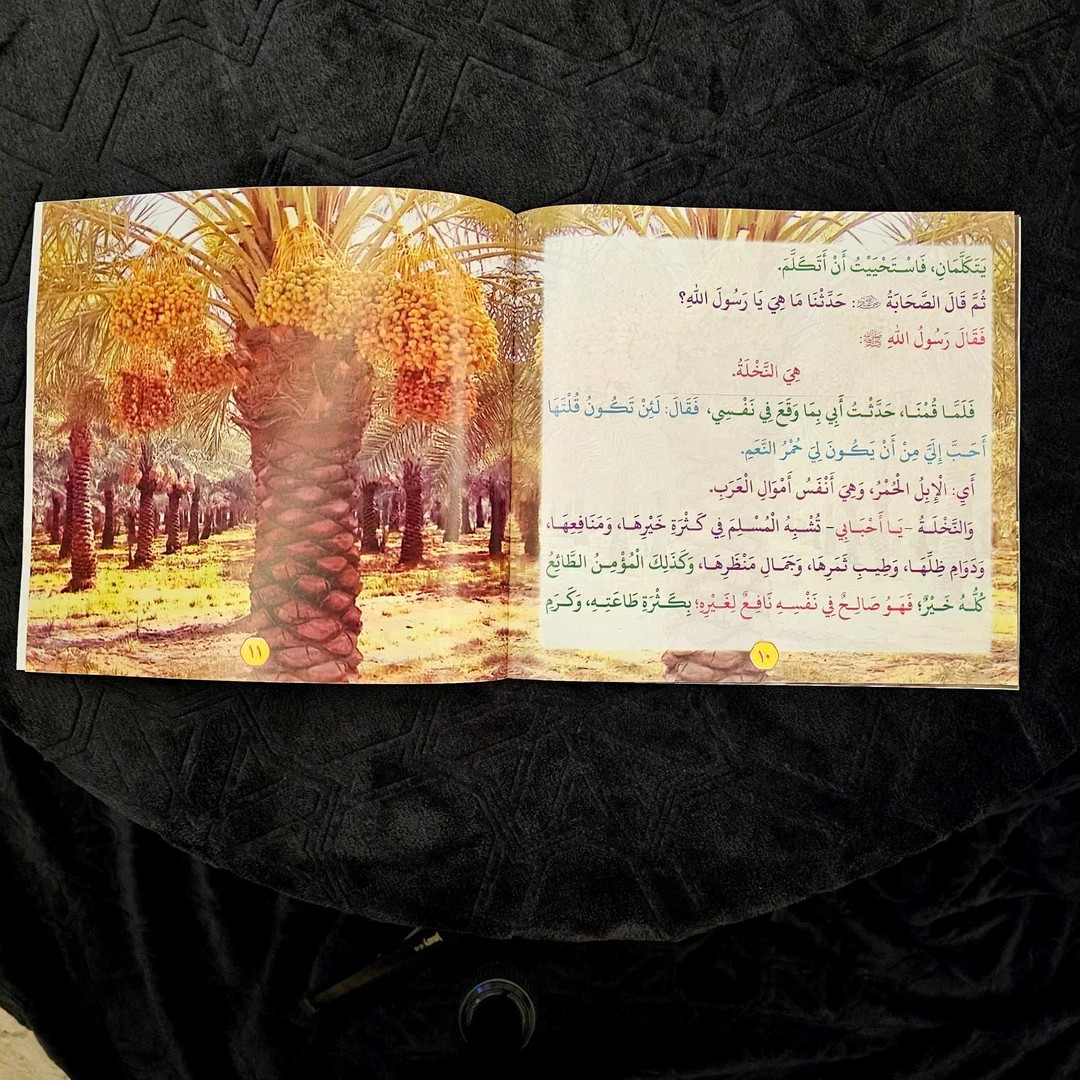 يَتَكَلَّمَانِ، فَاسْتَحْيَيْتُ أَنْ أَتَكَلَّمَ.
ثُمَّ قَالَ الصَّحَابَةُ ﷺ: حَدِّثْنَا مَا هِيَ يَا رَسُولَ اللهِ؟
فَقَالَ رَسُولُ اللهِ ﷺ:
هِيَ النَّخْلَةُ.
فَلَمَّا قُمْنَا، حَدَّثْتُ أَبِي بِمَا وَقَعَ فِي نَفْسِي، فَقَالَ: لَئِنْ تَكُونُ قُلْتَهَا
أَحَبَّ إِلَيَّ مِنْ أَنْ يَكُونَ لِيَ حُمْرُ النَّعَمِ.
أَيِ: الْإِبِلُ الْحُمْرُ، وَهِيَ أَنْفَسُ أَمْوَالِ الْعَرَبِ.
وَالنَّخْلَةُ -يَا أَحْبَابِي- تُشْبِهُ الْمُسْلِمَ فِي كَثْرَةِ خَيْرِهَا، وَمَنَافِعِهَا،
وَدَوَامِ ظِلِّهَا، وَطِيبِ ثَمَرِهَا، وَجَمَالِ مَنْظَرِهَا، وَكَذَلِكَ الْمُؤْمِنُ الطَّائِعُ
كُلُّهُ خَيْرٌ؛ فَهُوَ صَالِحٌ فِي نَفْسِهِ نَافِعٌ لِغَيْرِهِ؛ بِكَثْرَةِ طَاعَتِهِ، وَكَرَمِ
١٠
١١